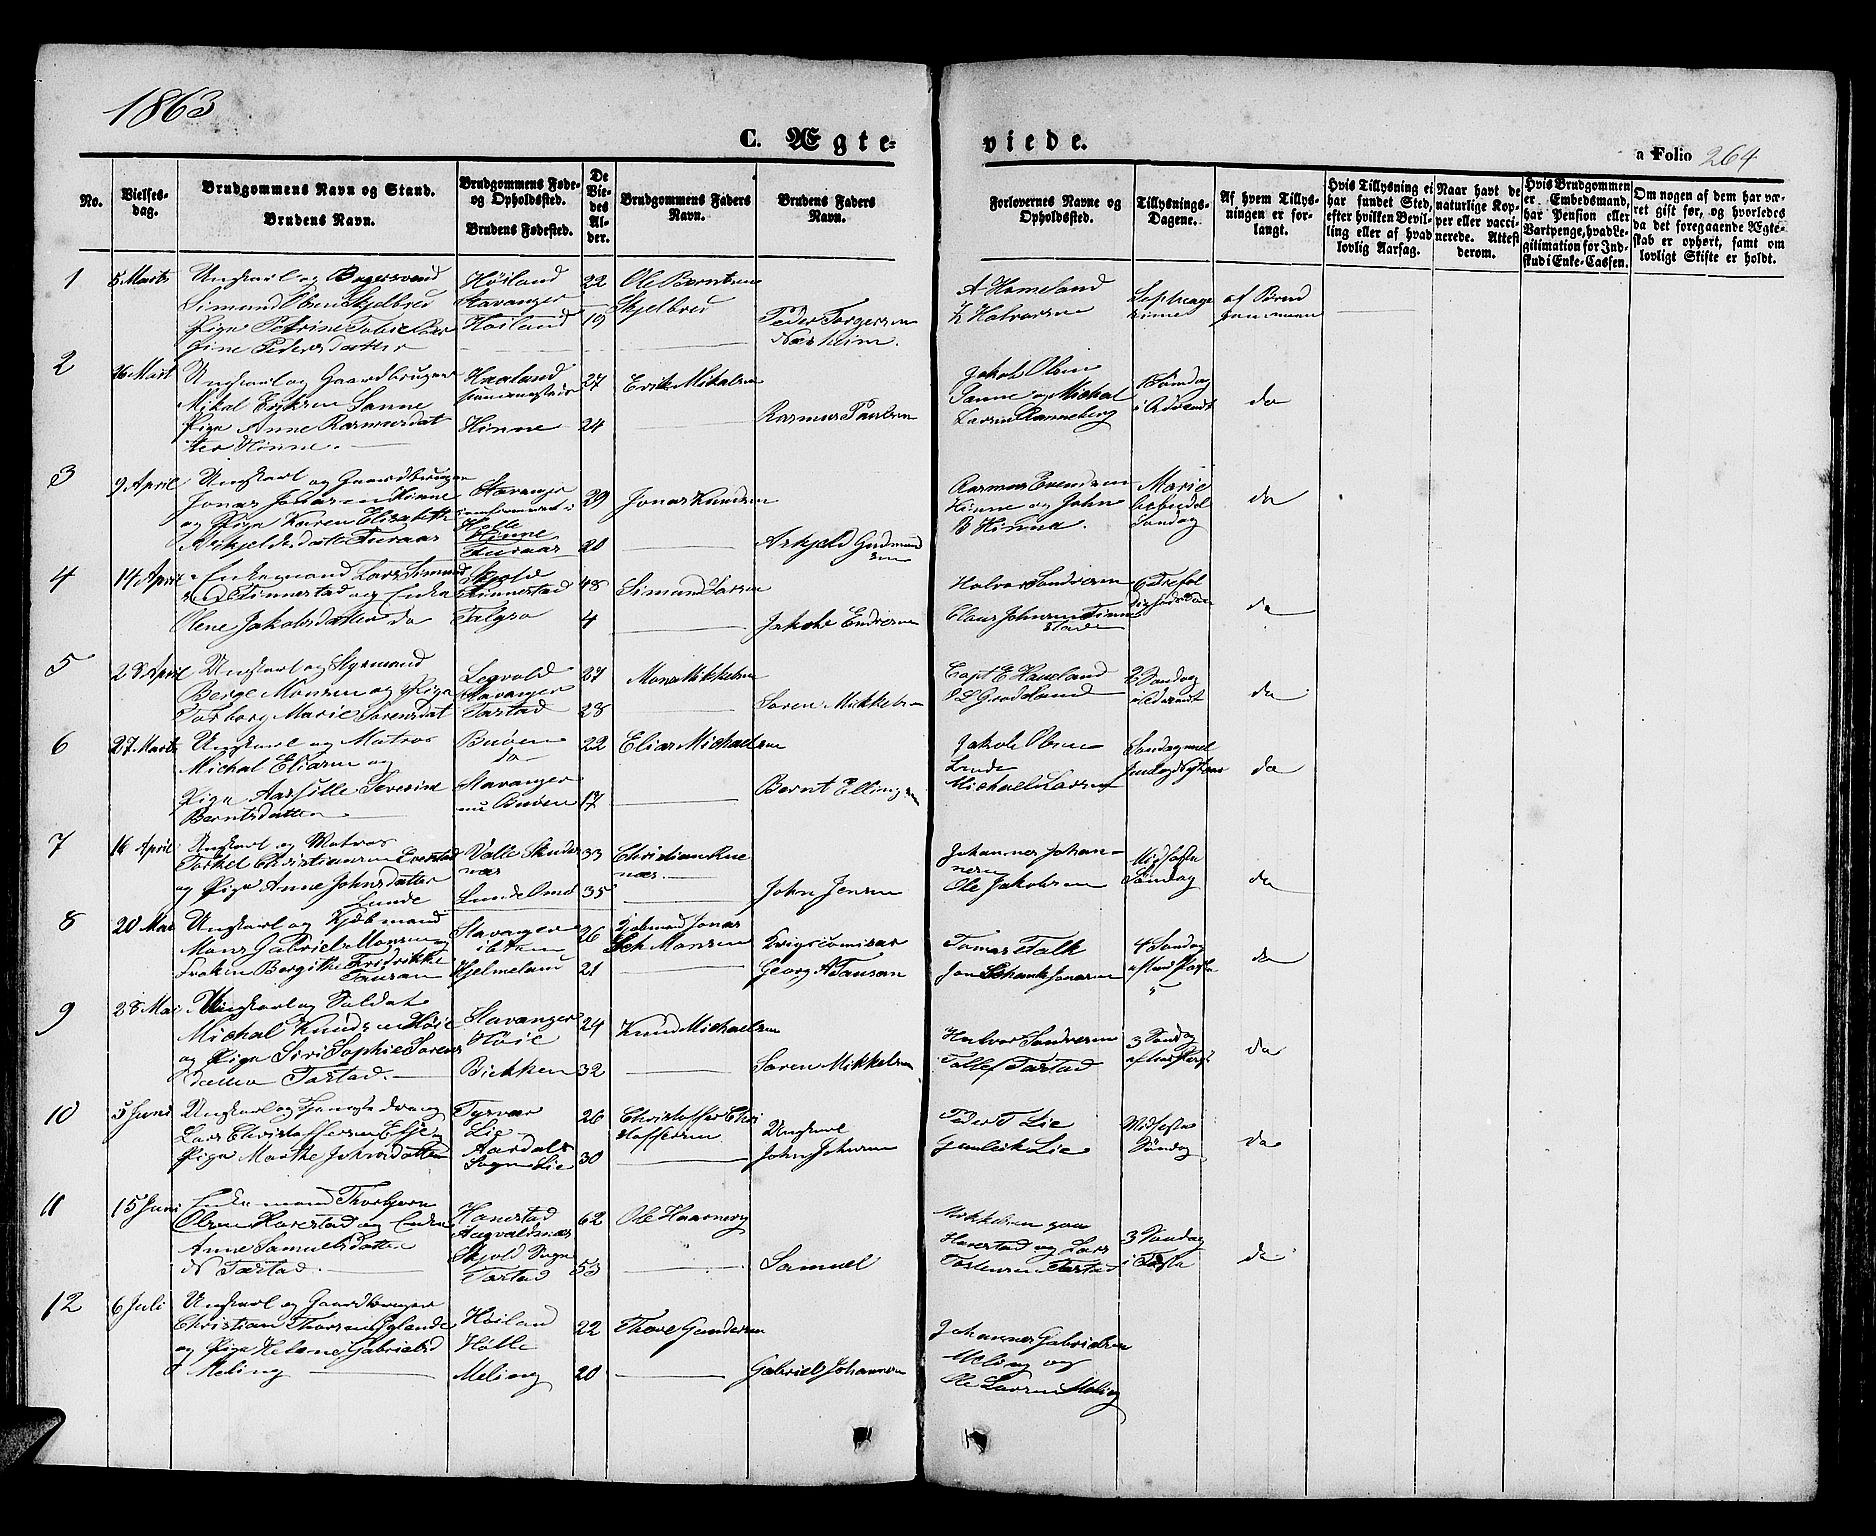 1863
C. Ægte-
viede.
a Folio 264
No.
Vielses-
dag.
Brudgommens Navn og Stand.
Brudens Navn.
Brudgommens Føde-
og Opholdssted.
Brudens Fødested.
De
Vie-
des
Al-
der.
Brudgommens Faders
Navn.
Brudens Faders
Navn.
Forlovernes Navne og
Opholdssted.
Tillysnings-
Dagene.
Af hvem Tillys-
ningen er for-
langt.
Hvis Tillysning ei
har fundet Sted,
efter hvilken Bevil-
ling eller af hvad
lovlig Aarsag.
Naar havt de
naturlige Kop-
per eller vacci-
nerede. Attest
derom.
Hvis Brudgommen
er Embedsmand,
har Pension eller
Vartpenge, hvad Le-
gitimation for Ind-
skud i Enke-Cassen.
Om nogen af dem har væ-
ret gift før, og hvorledes
da det foregaaende Ægte-
skab er ophørt, samt om
lovligt Skifte er holdt.
1
5 Marts
Ungkarl og Bagersvend
Simund Olsen Skjelbred
Pige Petrine Tobie
Pedersdatter
Høiland
Stavanger
Høiland
22
19
Ole Berntsen
Skjelbred
Peder Torgersen
Nærheim.
A Hameland
Halvorsen
af Brud
2
16 Mart
Ungkarl og Gaardbruger
Mikal Eriksen Sanne
Pige Anne Rasmusdat
ter Hinne.
Haaland
Hinne
27
24
Erik Mikalsen
Rasmus Paulsen
Jakob Olsen
Sanne og Michal
Larsen Ranneberg
Søndag
i Advent
da
3
9 April
Ungkarl og Gaardbruger
Jonas Jonasen Hinne
og Pige Karen Elisabeth
Askjeldsdatter Furaas
Stavanger
Holle
Hinne
Furaas
29
20
Jonas Knudsen
Askjeld Gudmund
sen
Rasmus Evendsen
Hinne og John
B Hinna.
Marie
bebudel
Søndag
da
4
14 April
Enkemand Lars Simund
sen Finnestad og Enke
Olene Jakobsdatter do
Skjold
Finnestad
Talgø
48
4
Simund Larsen
Jakob Endresen
Halvor Sandersen
Claus Johnsen Finne
stad
da
5
28 April
Ungkarl og Styrmand
Berge Monsen og Pige
Torborg Marie Sorensdat
Stavanger
Tastad
27
28
Mons Mikkelsen
Soren Mikkelsen
Capt E Haueland
2 Søndag
i Advent
da
6
27 Marts
Ungkarl og Matros
Michal Eliasen og
Pige Aasille Severine
Berntsdatter
Buøen
do
Stavanger
nu Buøen
22
17
Elias Michaelsen
Bernt Ellingsen
Jakob Olsen
Lende
Michael Larsen
da
7
16 April
Ungkarl og Matros
Torkel Christiansen
og Pige Anne Johnsdatter
Lunde
Valle Skudes
næs
33
35
Christian
næs.
John Jensen
Johannes Johan-
nesen
Ole Jakobsen
Midfaste
Søndag
da
8
20 Mai
Ungkarl og Kjøbmand
Mons Gabriel Monsen og
Frøken Bergithe Fredrikke
Tausan
Stavanger
ibidem
Hjelmeland
26
21
Kjøbmand Jonas
Sch Monsen
Krigscomisar
Georg A Tausan
Tomas Falk
Jon Schanke Jonasen
4 Søndag
da
9
28 Mai
Ungkarl og Soldat
Michal Knudsen Høie
og Pige Siri Sophie Sorens
datter Tastad.
Stavanger
Høie
Bækken
24
32
Knud Michaelsen
Soren Mikkelsen
Halvor Sandersen
Tollef Tastad
3 Søndag
da
10
5 Juni
Ungkarl og Tjenestedreng
Lars Christoffersen
Pige Marthe Johnsdatter
Tysvær
Lie
Aardals
Sogn Lie
26
30
Christoffer Chri
stoffersen
Ungkarl
John Johnsen
Peder T Lie
Gunleik Lie
Midfaste
Søndag
da
11
15 Juni
Enkemand Thorbjørn
Olsen Harestad og Enke
Anne Samuelsdatter
N Tastad.
Harestad
Augvaldsnæs
Skjold Sogn
Tastad
62
53
Ole
Samuel
Mikkelsen paa
Harestad og Lars
Torkelsen Tastad
3 Søndag
i Faste
da
12
6 Juli
Ungkarl og Gaardbruger
Christian Thorsen Jylande
og Pige Helene Gabrielsd
Meling
Høiland
Holle
Meling
22
20
Thore Gundersen
Gabriel Johannesen
Johannes Gabrielsen
Meling og
Ole Larsen Meling